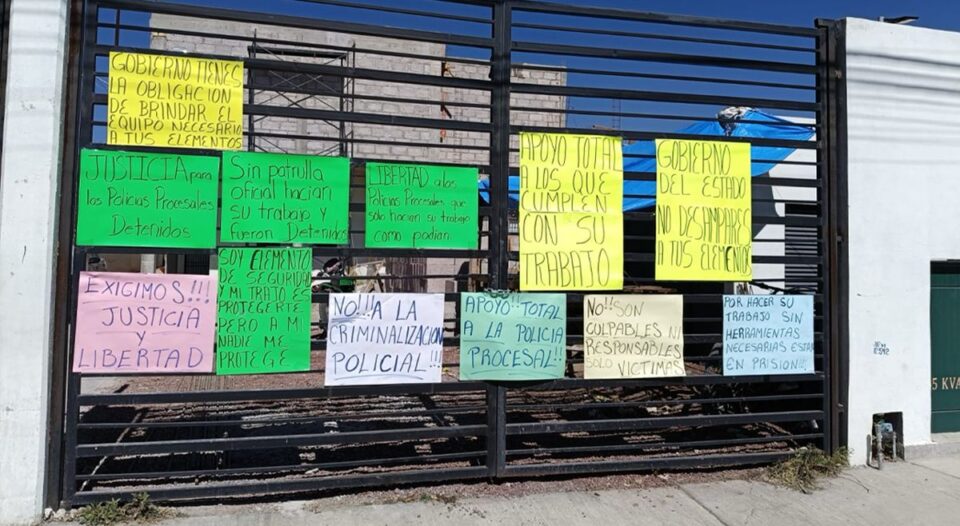 GOBIERNO TIENES
LA OBLIGACION
DE BRINDAR EL
EQUIPO NECESARIO
A TUS ELEMENTOS
JUSTICIA para
los Policias Procesales
Detenidos
Sin patrulla
oficial hacian
su trabajo y
fueron Detenidos
LIBERTAD a los
Policias Procesales que
solo hacian su trabajo
como podian
APOYO TOTAL
A LOS QUE
CUMPLEN
CON SU
TRABAJO
GOBIERNO
DEL ESTADO
NO DESAMPARES
A TUS ELEMENTOS
EXIGIMOS!!!
JUSTICIA
Y
LIBERTAD
SOY ELEMENTO
DE SEGURIDAD
Y MI TRATO ES
PROTEGERTE
PERO A MI
NADIE ME
PROTEGE
NO!!! A LA
CRIMINALIZACION
POLICIAL!!!
APOYO!! TOTAL
A LA POLICIA
PROCESAL!!
NO!! SON
CULPABLES NI
RESPONSABLES
SOLO VICTIMAS
POR HACER SU
TRABAJO SIN
HERRAMIENTAS
NECESARIAS ESTAN
EN PRISION!!!
5 KVA